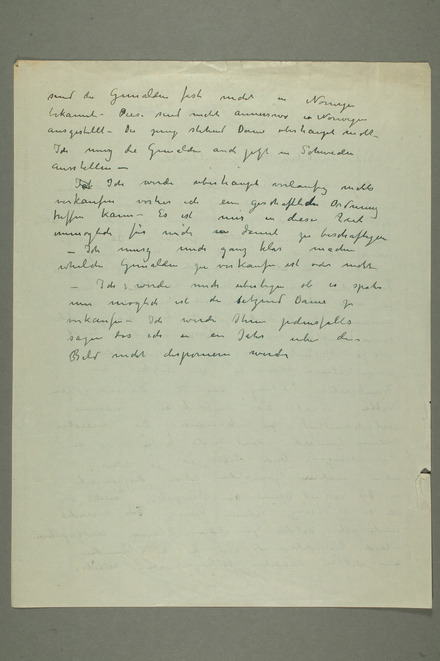 sind die Gemälden fast nicht in Norwegen
bekannt – Diese sind nicht in Norwegen
ausgestellt – Die jung stehend Dame uberhaupt nicht –
Ich mag die Gemälden auch jetzt in Schweden
ausstellen –
Ich werde uberhaupt vorlaufig nichts
verkaufen vorher ich ein geschaftliche Ordnung
treffen kann – Es ist mir in diese Zeit
unmoglich fur mich damit zu beschaftigen
– Ich musz mich ganz klar machen
whelche Gemälden zu verkaufen ist oder nicht
– Ich werde mich uberlegen ob es spater
mir moglich ist die Dame zu
verkaufen – Ich werde Ihnen jedenfalls
sagen das ich in ein Jahr uber das
Bild nicht disponieren werde